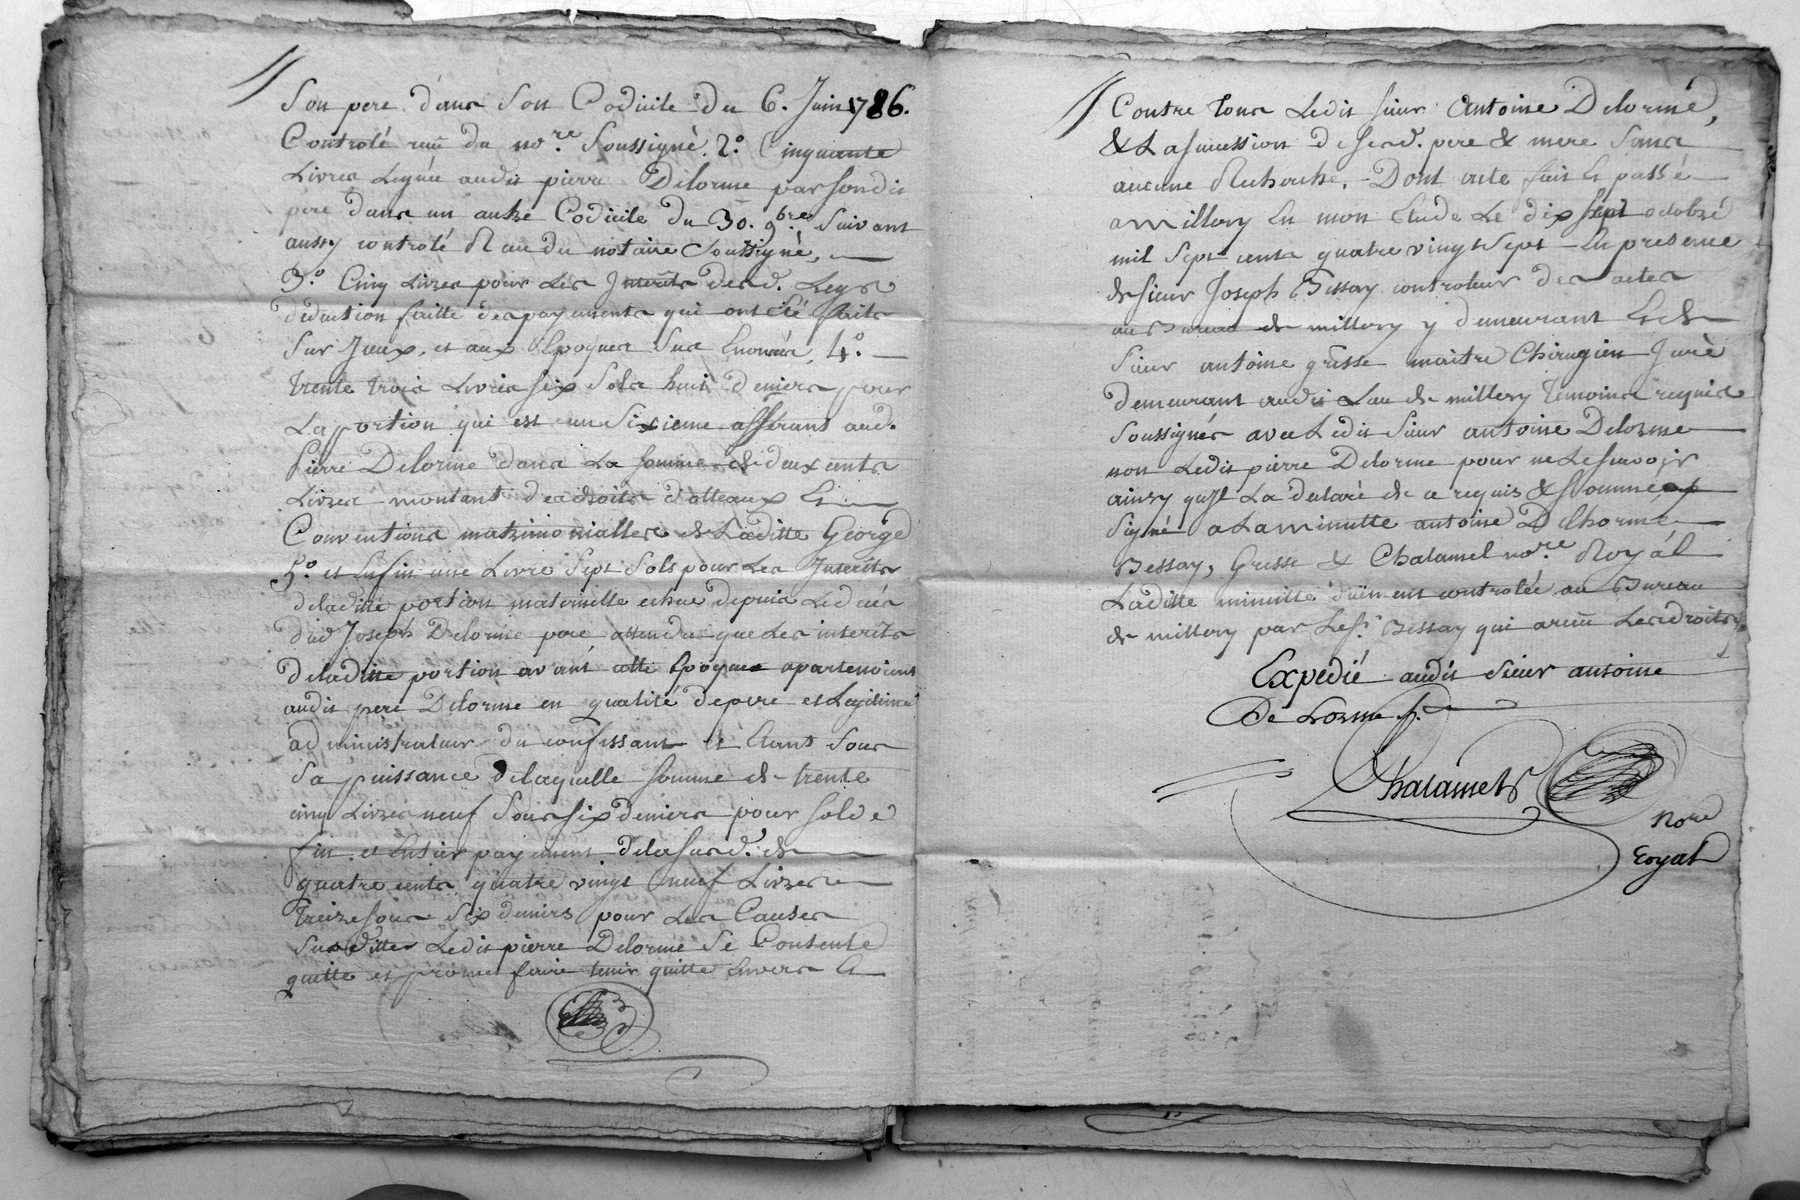 Son pere dans Son Codicile du 6. Juin 1786.
Controlé reçu du no.re Soussigné. 2.o Cinquante
Livres Legués audit pierre Delorme par Sondit
pere dans un autre Codicile du 30. 9bre Suivant
aussy controlé Reçu du notaire Soussigné,
3.o Cinq Livres pour Les Interêts desd. Legs
déduction faitte des payements qui ont été faits
Sur Iceux, et aux Epoques Sus Enoncées, 4.o
trente trois Livres Six Sols huit deniers pour
La portion qui est un Sixieme afférant aud.
Pierre Delorme dans La Somme de deux cents
Livres montant des droits d'atteaux Et
Conventions matrimonialles de Laditte George
5.o et Enfin une Livre Sept Sols pour Les Interêts
deladitte portion maternelle echue depuis Le decés
dud Joseph Delorme pere attendu que Les interêts
deladitte portion avant cette Epoque apartenoient
audit pere Delorme en qualité de pere et Legitime
administrateur du confessant et Etant Sous
Sa puissance delaquelle Somme de trente
cinq Livres neuf Sous Six deniers pour Solde
fin et Entier payement dela Susd. de
quatre cents quatre vingt neuf Livres
treize Sous Six deniers pour Les Causes
Susdittes Ledit pierre Delorme Se Contente
quitte et promet faire tenir quitte Envers Et
Contre tous Ledit Sieur Antoine Delorme,
& La Succession de Sesd. pere & mere Sans
aucune Recherche. Dont acte fait Et passé
a millery En mon Etude Le dix Sept octobre
mil Sept cents quatre vingt Sept En presence
de Sieur Joseph Bessay controleur des actes
au Bureau de millery y demeurant Et de
Sieur antoine grisse maitre Chirugien Juré
demeurant audit Lieu de millery temoins requis
Soussignés avec Ledit Sieur antoine Delorme
non Ledit pierre Delorme pour ne Le Savoir
ainsy qu'Il La declaré de ce requis & Sommé
Signé a La minutte antoine Delhorme
Bessay, Grisse & Chatamel no.re Royal
Laditte minutte düement controlée au Bureau
de millery par Le S.r Bessay qui a reçu Les droits
Expedié audit Sieur antoine
De Lorme
Chatamel
Nore
Royal